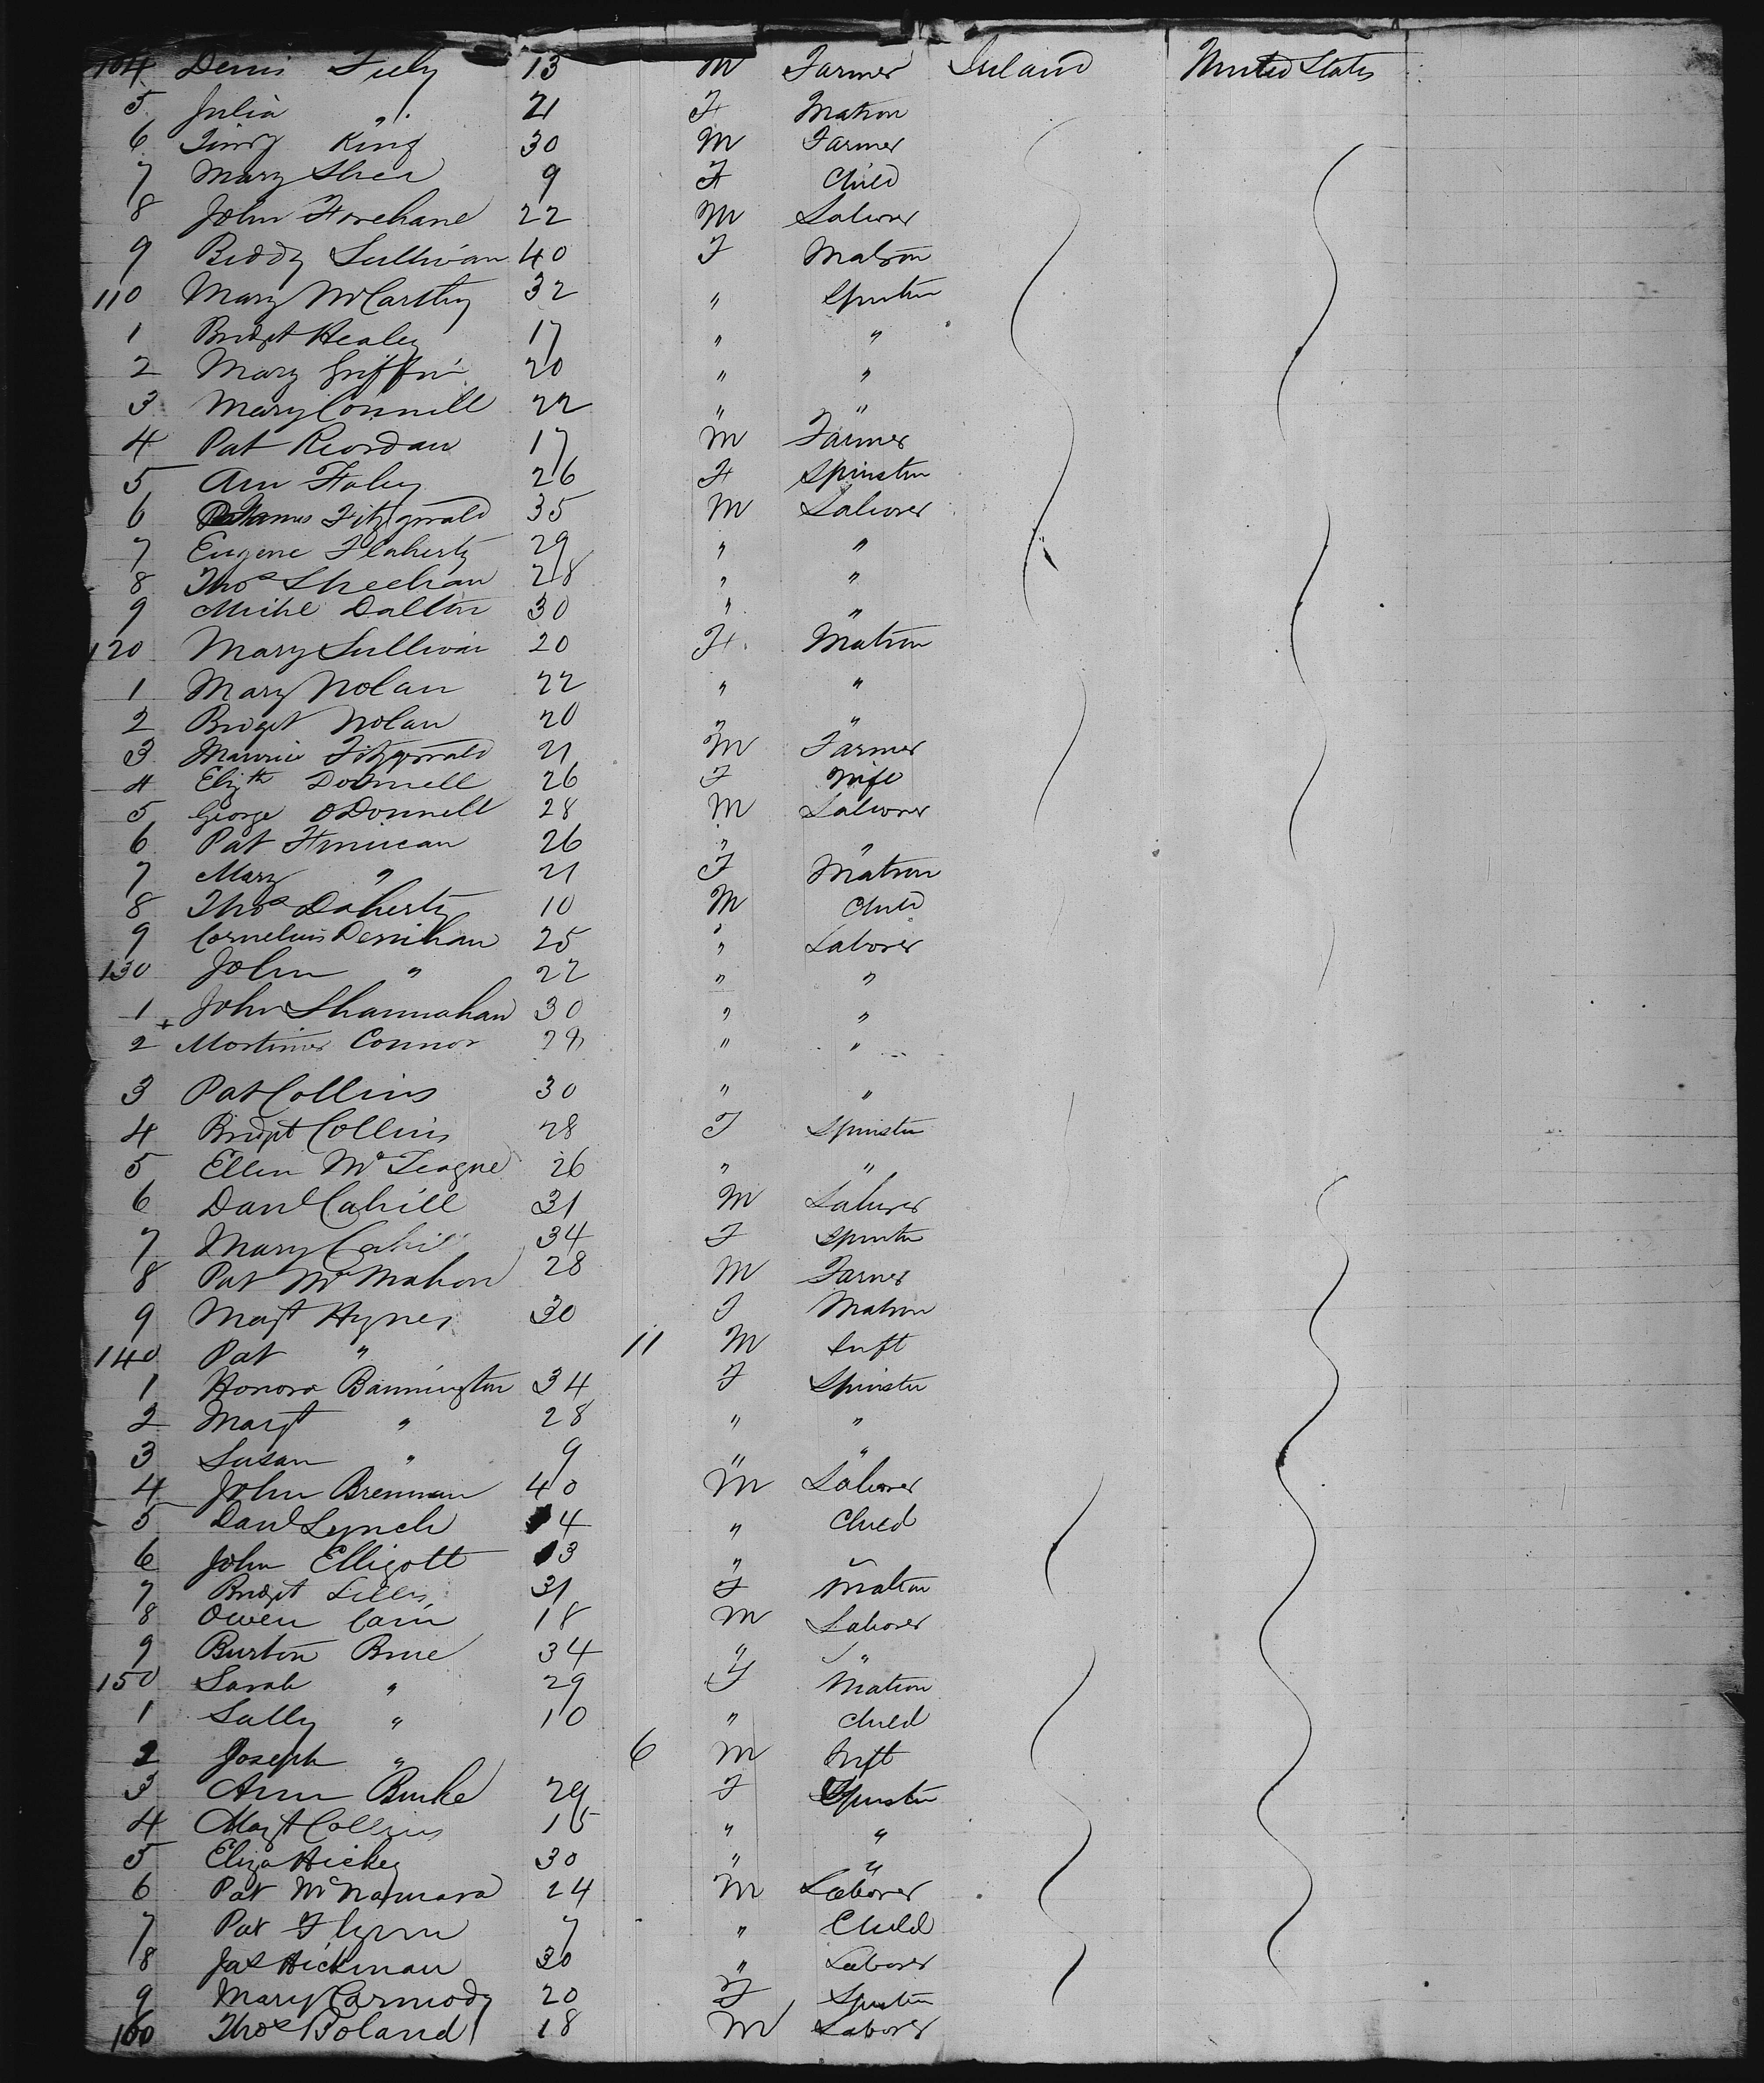 104 Denis Tuly 13 M Farmer Ireland United States
5 Julia " 21 F Matron
6 Timy King 30 M Farmer
7 Mary Shea 9 F Child
8 John Forehane 22 M Laborer
9 Biddy Sullivan 40 F Matron
110 Mary McCarthy 32 " Spinster
1 Bridgt Healey 17 " "
2 Mary Griffin 20 " "
3 Mary Connell 22 " "
4 Pat Reordan 17 M Farmer
5 Ann Foley 26 F Spinster
6 James Fitzgerald 35 M Laborer
7 Eugene Flaherty 29 " "
8 Thos Sheehan 28 " "
9 Michl Dalton 30 " "
120 Mary Sullivan 20 F Matron
1 Mary Nolan 22 " "
2 Bridget Nolan 20 " "
3 Maurice Fitzgerald 21 M Farmer
4 Elizth Donnell 26 F Wife
5 George ODonnell 28 M Laborer
6 Pat Finucan 26 " "
7 Mary " 21 F Matron
8 Thos Doherty 10 M Child
9 Cornelius Dennihan 25 " Laborer
130 John " 22 " "
1 John Shannahan 30 " "
2 Mortimer Connor 28 " "
3 Pat Collins 30 " "
4 Bridgt Collins 28 F Spinster
5 Ellen McTeague 26 " "
6 Danl Cahill 31 M Laborer
7 Mary Cahill 34 F Spinster
8 Pat McMahon 28 M Farmer
9 Margt Hynes 30 F Matron
140 Pat " 11 M Inft
1 Honora Bannington 34 F Spinster
2 Margt " 28 " "
3 Susan " 9 " "
4 John Brennan 40 M Laborer
5 Danl Lynch 4 " Child
6 John Elligott 3 " "
7 Bridgt Lillis 31 F Matron
8 Owen Cain 18 M Laborer
9 Burton Brue 34 " "
150 Sarah " 29 F Matron
1 Sally " 10 " Child
2 Joseph " 6 M Inft
3 Ann Burke 29 F Spinster
4 Margt Collins 15 " "
5 Eliza Hickey 30 " "
6 Pat McNamara 24 M Laborer
7 Pat Flynn 7 " Child
8 Jas Hickman 30 " Laborer
9 Mary Carmody 20 F Spinster
160 Thos Boland 18 M Laborer